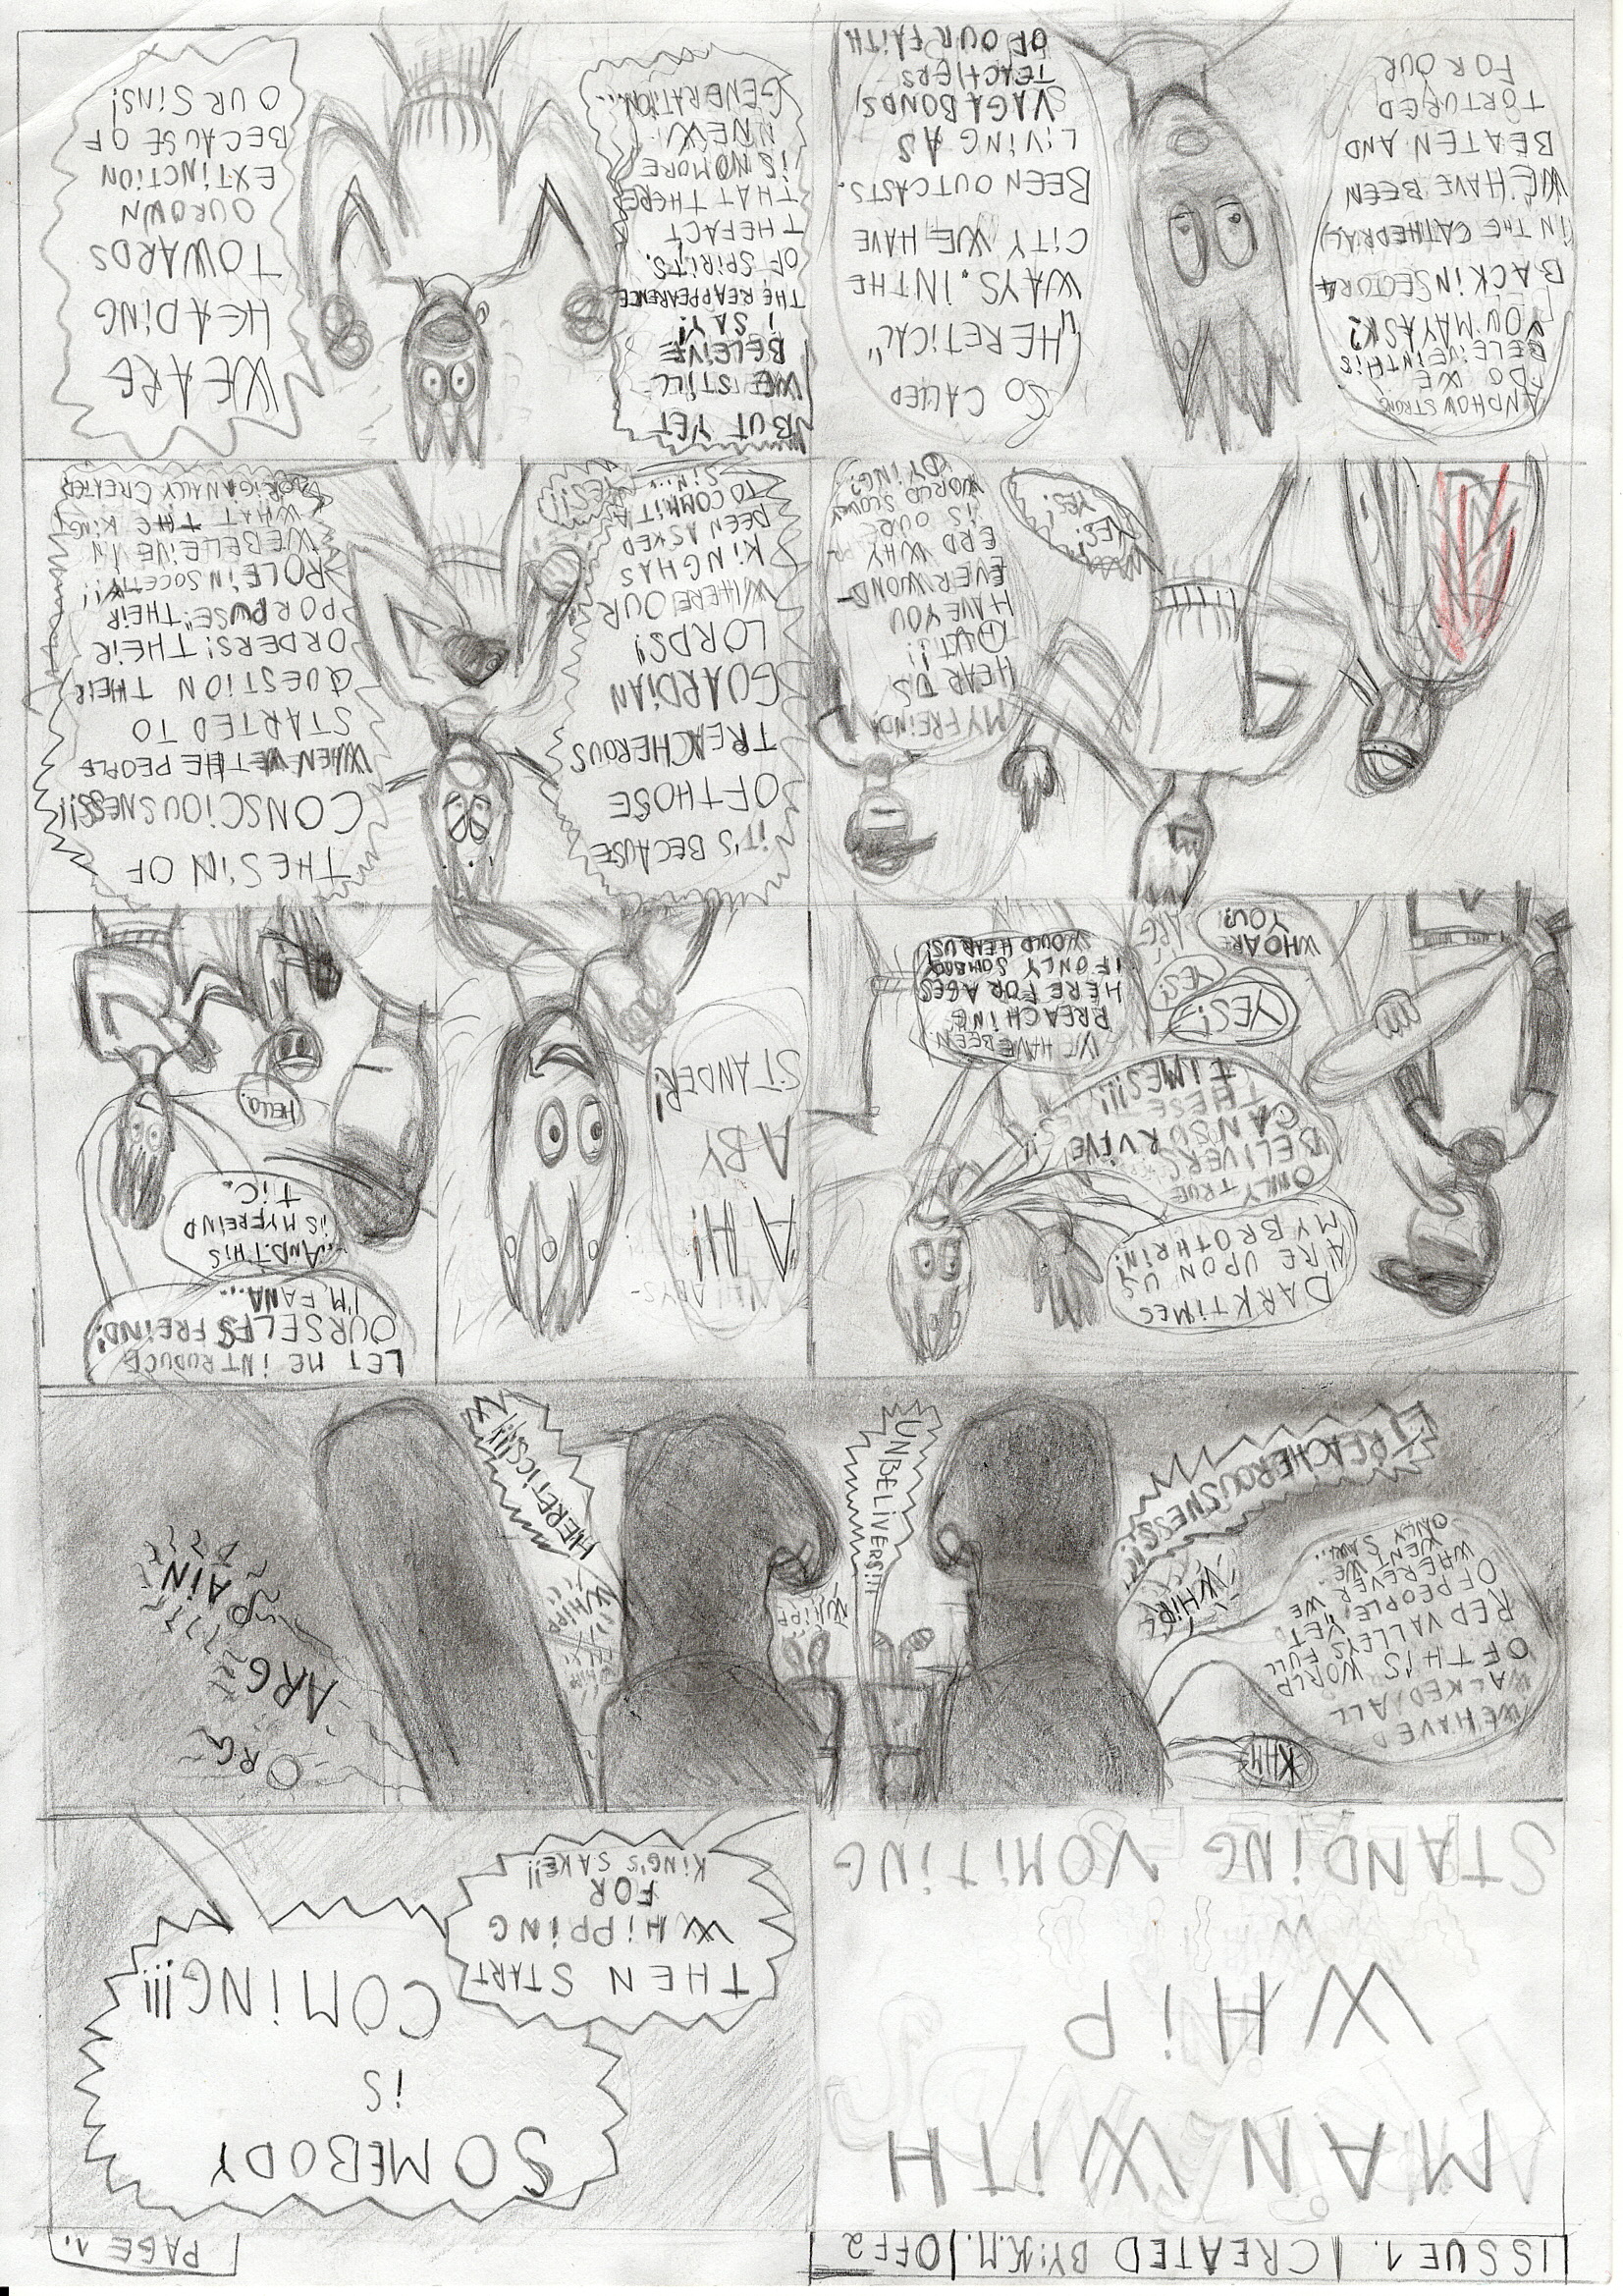 ISSUE 1. CREATED BY: K.M. OFF 2
PAGE 1.
MAN WITH
WHIP
STANDING VOMITING
SOMEBODY
IS
COMING!!!
THEN START
WHIPPING
FOR
KING'S SAKE!!
KHM
WE HAVED
WALKED ALL
OF THIS WORLD
RED VALLEYS FULL
OF PEOPLE, YET
WHEREVER WE
WENT WE
ONLY SAW...
WHIP
TREACHEROUSNESS!!
UNBELIVERS!!!
WHIPP
WHIPP
HERETICS!!!
ORG
ARG
PAIN
DARK TIMES
ARE UPON US
MY BROTHRIN!
ONLY TRUE
BELIVERS
CAN SURVIVE
THESE
TIMES!!!
YES!
YES!
WHO ARE
YOU?
ARG
WE HAVE BEEN
PREACHING
HERE FOR AGES
IF ONLY SOMBODY
WOULD HEAR US!
AH!
A BY
STANDER!
LET ME INTRODUCE
OURSELFS FREIND!
I'M FANA...
..AND THIS
IS MY FREIND
TIC.
HELLO..
MY FREIND!
HEAR US
OUT!!
HAVE YOU
EVER WOND-
ERD WHY
IS OUR
WORLD SLOWLY
DYING?
YES!
YES!
IT'S BECAUSE
OF THOSE
TREACHEROUS
GUARDIAN
LORDS!
WHERE OUR
KING HAS
BEEN ASKED
TO COMMIT A
SIN...
YES!!
THE SIN OF
CONSCIOUSNESS!!
WHEN WE THE PEOPLE
STARTED TO
QUESTION THEIR
ORDERS! THEIR
PORPUSE" THEIR
ROLE IN SOCETIY!!
WE BELEIVE IN
WHAT THE KING
ORIGANALLY CREATED
AND HOW STRONG
DO WE
BELEIVE IN THIS
YOU MAY ASK?
BACK IN SECTOR 4
(IN THE CATHEDRAL)
WE HAVE BEEN
BEATEN AND
TORTURED
FOR OUR
SO CALLED
"HERETICAL"
WAYS. IN THE
CITY WE HAVE
BEEN OUTCASTS.
LIVING AS
VAGABONDS,
TEACHERS
OF OUR FAITH.
BUT YET
WE STILL
BELEIVE
I SAY!
THE REAPPEARENCE
OF SPIRITS.
THE FACT
THAT THERE
IS NO MORE
NEW
GENERATION...
WE ARE
HEADING
TOWARDS
OUR OWN
EXTINCTION
BECAUSE OF
OUR SINS!